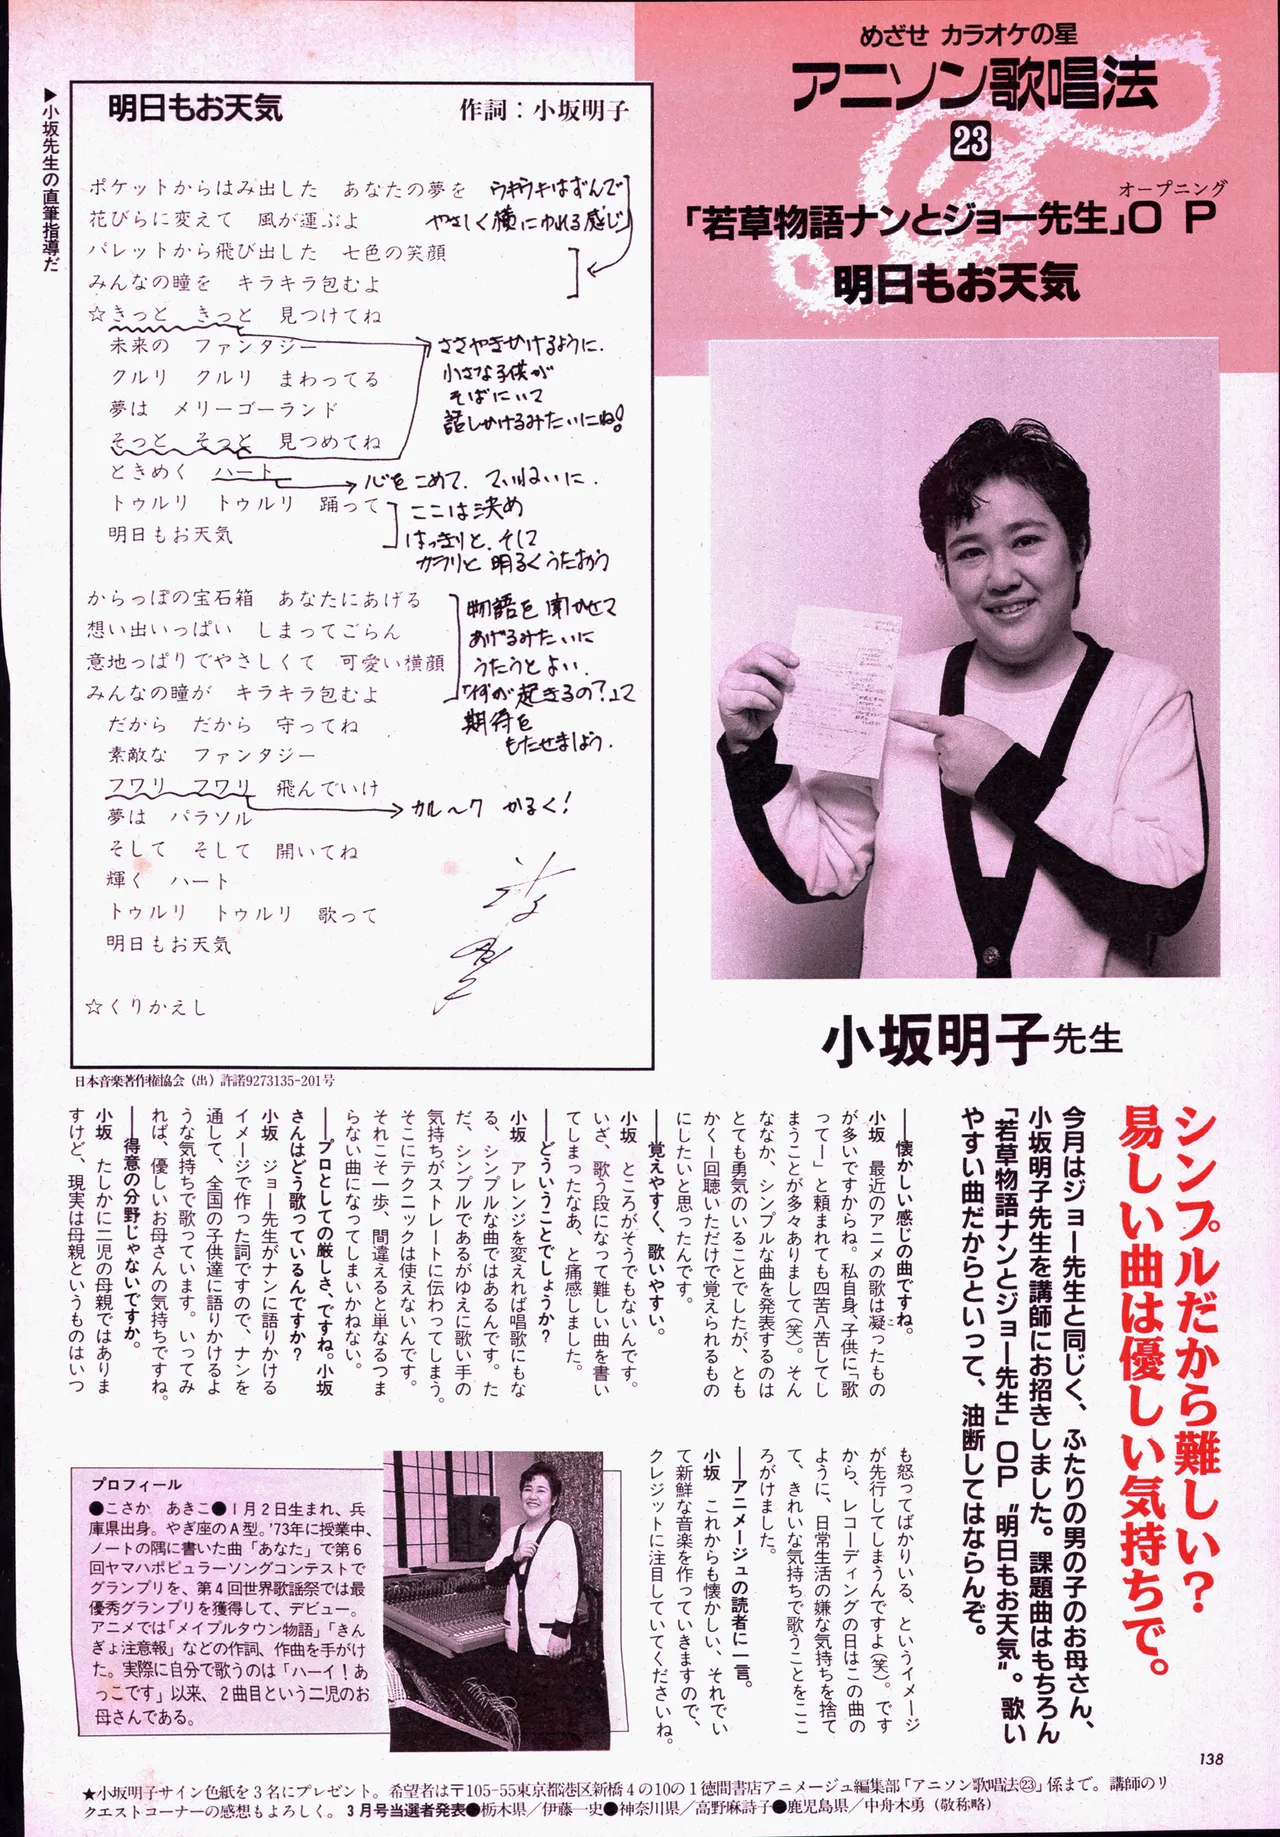 めざせ カラオケの星
アニソン歌唱法
23
オープニング
「若草物語ナンとジョー先生」OP
明日もお天気
▶小坂先生の直筆指導だ
明日もお天気 作詞：小坂明子
ポケットからはみ出した あなたの夢を
花びらに変えて 風が運ぶよ
パレットから飛び出した 七色の笑顔
みんなの瞳を キラキラ包むよ
☆きっと きっと 見つけてね
未来の ファンタジー
クルリ クルリ まわってる
夢は メリーゴーランド
そっと そっと 見つめてね
ときめく ハート
トゥルリ トゥルリ 踊って
明日もお天気
からっぽの宝石箱 あなたにあげる
想い出いっぱい しまってごらん
意地っぱりでやさしくて 可愛い横顔
みんなの瞳が キラキラ包むよ
だから だから 守ってね
素敵な ファンタジー
フワリ フワリ 飛んでいけ
夢は パラソル
そして そして 開いてね
輝く ハート
トゥルリ トゥルリ 歌って
明日もお天気
☆くりかえし
ウキウキはずんで
やさしく横にゆれる感じ
ささやきかけるように.
小さな子供が
そばにいて
話しかけるみたいにね!
心をこめて. ていねいに.
ここは決め
はっきりと. そして
カラリと 明るくうたおう
物語を聞かせて
あげるみたいに
うたうとよい.
「何が起きるの?」って
期待を
もたせましょう.
カル〜ク かるく!
日本音楽著作権協会（出）許諾9273135-201号
小坂明子先生
シンプルだから難しい？
易しい曲は優しい気持ちで。
今月はジョー先生と同じく、ふたりの男の子のお母さん、
小坂明子先生を講師にお招きしました。課題曲はもちろん
「若草物語ナンとジョー先生」OP〝明日もお天気〟。歌い
やすい曲だからといって、油断してはならんぞ。
――懐かしい感じの曲ですね。
小坂 最近のアニメの歌は凝ったもの
が多いですからね。私自身、子供に「歌
ってー」と頼まれても四苦八苦してし
まうことが多々ありまして（笑）。そん
ななか、シンプルな曲を発表するのは
とても勇気のいることでしたが、とも
かく一回聴いただけで覚えられるもの
にしたいと思ったんです。
――覚えやすく、歌いやすい。
小坂 ところがそうでもないんです。
いざ、歌う段になって難しい曲を書い
てしまったなあ、と痛感しました。
――どういうことでしょうか？
小坂 アレンジを変えれば唱歌にもな
る、シンプルな曲ではあるんです。た
だ、シンプルであるがゆえに歌い手の
気持ちがストレートに伝わってしまう。
そこにテクニックは使えないんです。
それこそ一歩、間違えると単なるつま
らない曲になってしまいかねない。
――プロとしての厳しさ、ですね。小坂
さんはどう歌っているんですか？
小坂 ジョー先生がナンに語りかける
イメージで作った詞ですので、ナンを
通して、全国の子供達に語りかけるよ
うな気持ちで歌っています。いってみ
れば、優しいお母さんの気持ちですね。
――得意の分野じゃないですか。
小坂 たしかに二児の母親ではありま
すけど、現実は母親というものはいつ
も怒ってばかりいる、というイメージ
が先行してしまうんですよ（笑）。です
から、レコーディングの日はこの曲の
ように、日常生活の嫌な気持ちを捨て
て、きれいな気持ちで歌うことをここ
ろがけました。
――アニメージュの読者に一言。
小坂 これからも懐かしい、それでい
て新鮮な音楽を作っていきますので、
クレジットに注目していてくださいね。
プロフィール
●こさか あきこ●1月2日生まれ、兵
庫県出身。やぎ座のA型。'73年に授業中、
ノートの隅に書いた曲「あなた」で第6
回ヤマハポピュラーソングコンテストで
グランプリを、第4回世界歌謡祭では最
優秀グランプリを獲得して、デビュー。
アニメでは「メイプルタウン物語」「きん
ぎょ注意報」などの作詞、作曲を手がけ
た。実際に自分で歌うのは「ハーイ！あ
っこです」以来、2曲目という二児のお
母さんである。
138
★小坂明子サイン色紙を3名にプレゼント。希望者は〒105-55東京都港区新橋4の10の1徳間書店アニメージュ編集部「アニソン歌唱法㉓」係まで。講師のリ
クエストコーナーの感想もよろしく。3月号当選者発表●栃木県／伊藤一史●神奈川県／高野麻詩子●鹿児島県／中舟木勇（敬称略）